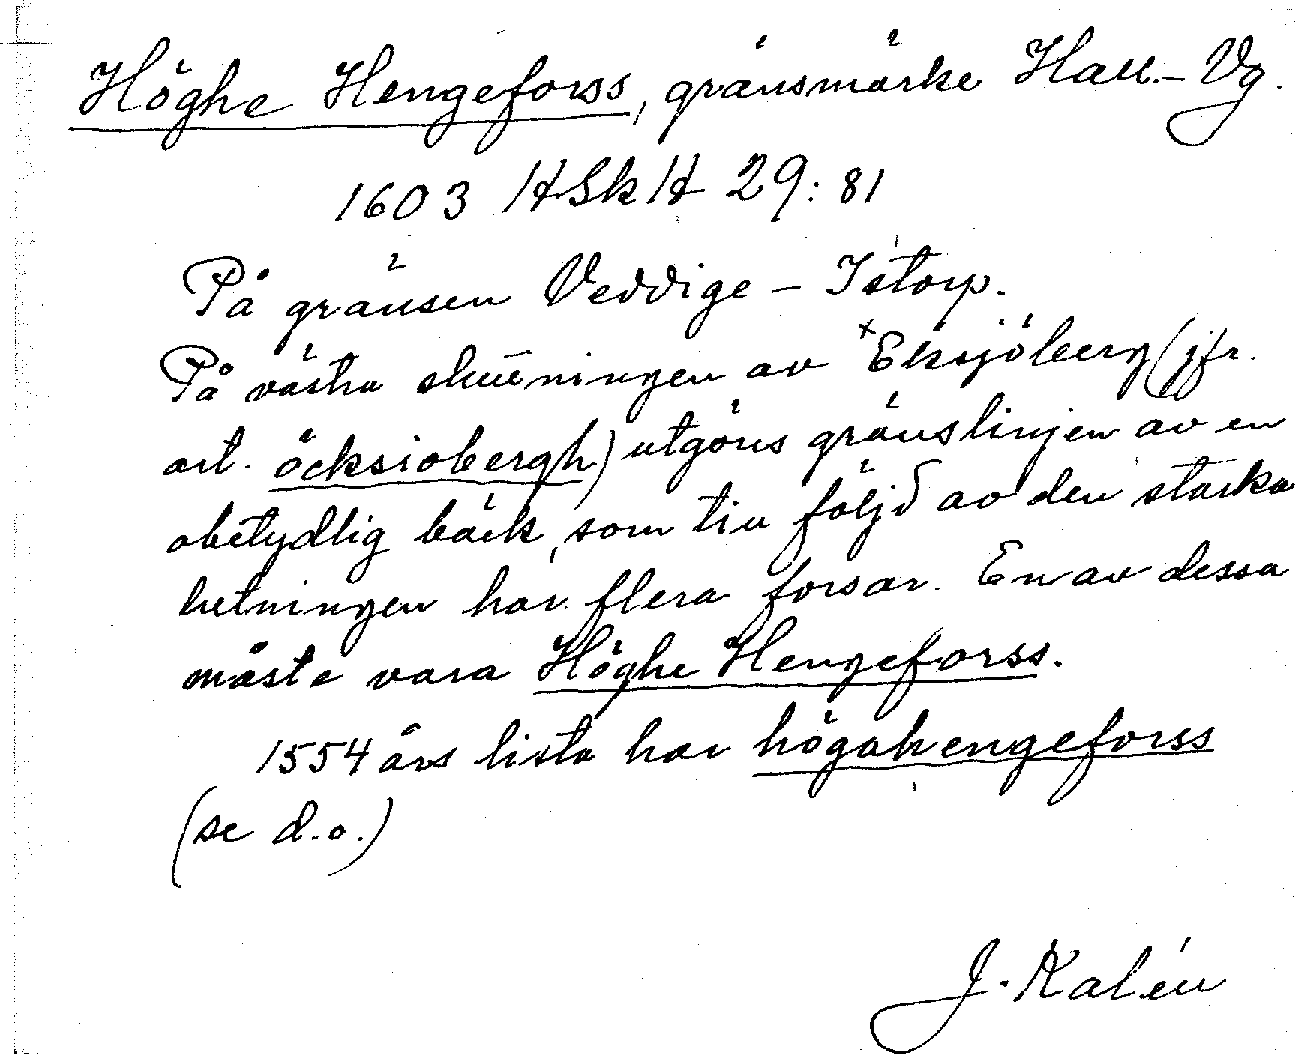 Höghe Hengeforss, gränsmärke Hall.– Vg.
1603 HSkH 29:81
På gränsen Veddige – Istorp.
På västra sluttningen av ˣEksjöberg (jfr.
art. öcksiobergh) utgörs gränslinjen av en
obetydlig bäck, som till följd av den starka
lutningen har flera forsar. En av dessa
måste vara Höghe Hengeforss.
1554 års lista har högahengeforss
(se d.o.)
J. Kalén